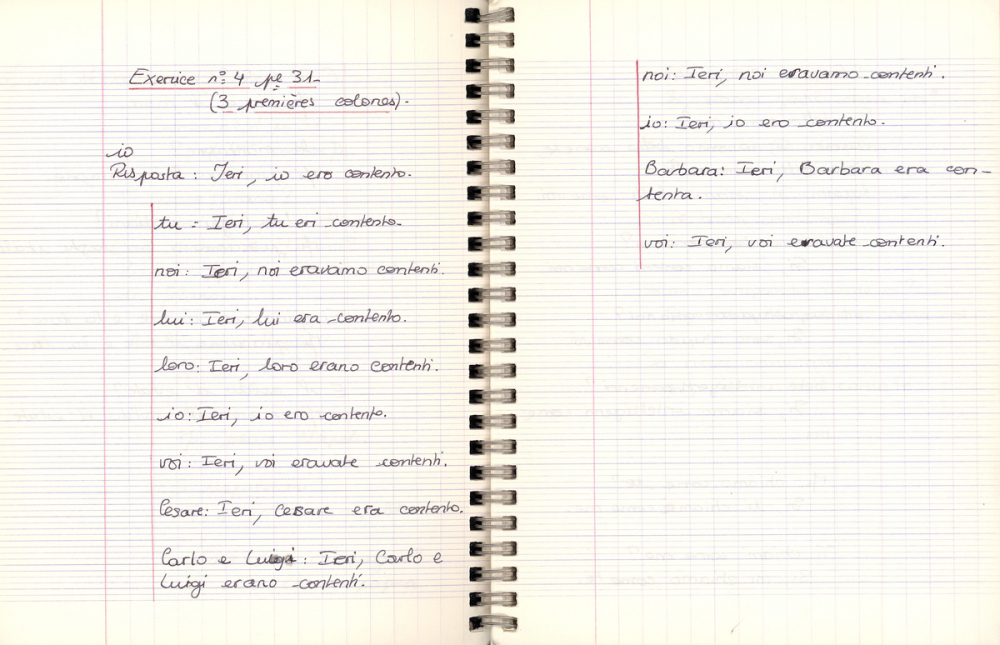 Exercice n° 4 pe 31_
(3 premières colones).
io
Risposta : Ieri, io ero contento.
tu = Ieri, tu eri contento.
noi : Ieri, noi eravamo contenti.
lui : Ieri, lui era contento.
loro : Ieri, loro erano contenti.
io : Ieri, io ero contento.
voi : Ieri, voi eravate contenti.
Cesare : Ieri, Cesare era contento.
Carlo e Luigi : Ieri, Carlo e
Luigi erano contenti.
noi : Ieri, noi eravamo contenti.
io : Ieri, io ero contento.
Barbara : Ieri, Barbara era con-
tenta.
voi : Ieri, voi eravate contenti.